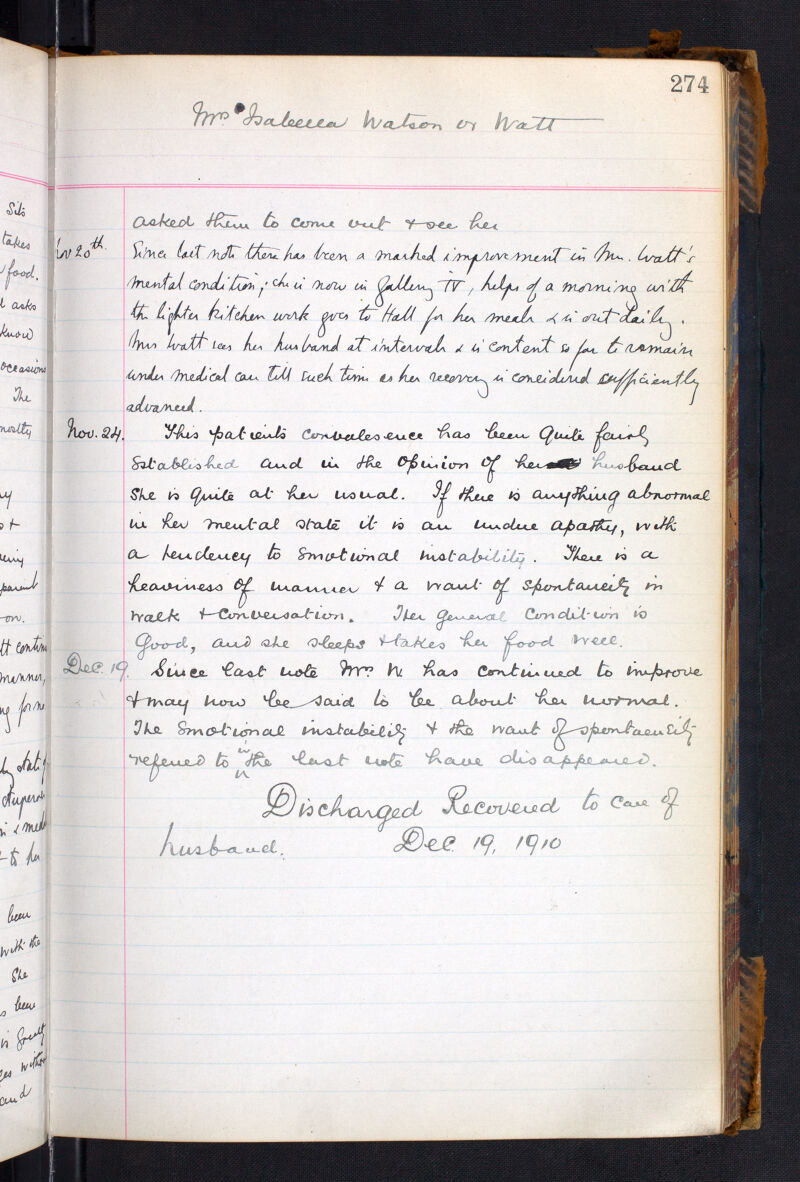 274
Mrs Isabella Watson or Watt
asked them to come out & see her
Nov 20th. Since last note there has been a marked improvement in Mrs. Watt's
mental condition; she is now in Gallery IV, helps of a morning with
the lighter kitchen work goes to Hall for her meals & is out daily.
Mrs Watt sees her husband at intervals & is content so far to remain
under medical care till such time as her recovery is considered sufficiently
advanced.
Nov. 24. This patients convalescence has been quite fairly
established and in the opinion of her husband
she is quite at her usual. If there is anything abnormal
in her mental state it is an undue apathy, with
a tendency to emotional instability. There is a
heaviness of manner & a want of spontaneity in
walk & conversation. Her general condition is
Good, and she sleeps & takes her food well.
Dec. 19. Since last note Mrs. W. has continued to improve
& may now be said to be about her normal.
The emotional instability & the want of spontaeneity
referred to in the last note have disappeared.
Discharged Recovered to care of
husband. Dec. 19, 1910
Sits
takes
food.
asks
know
occasions
The
mostly
on.
manner,
been
with the
She
been
and